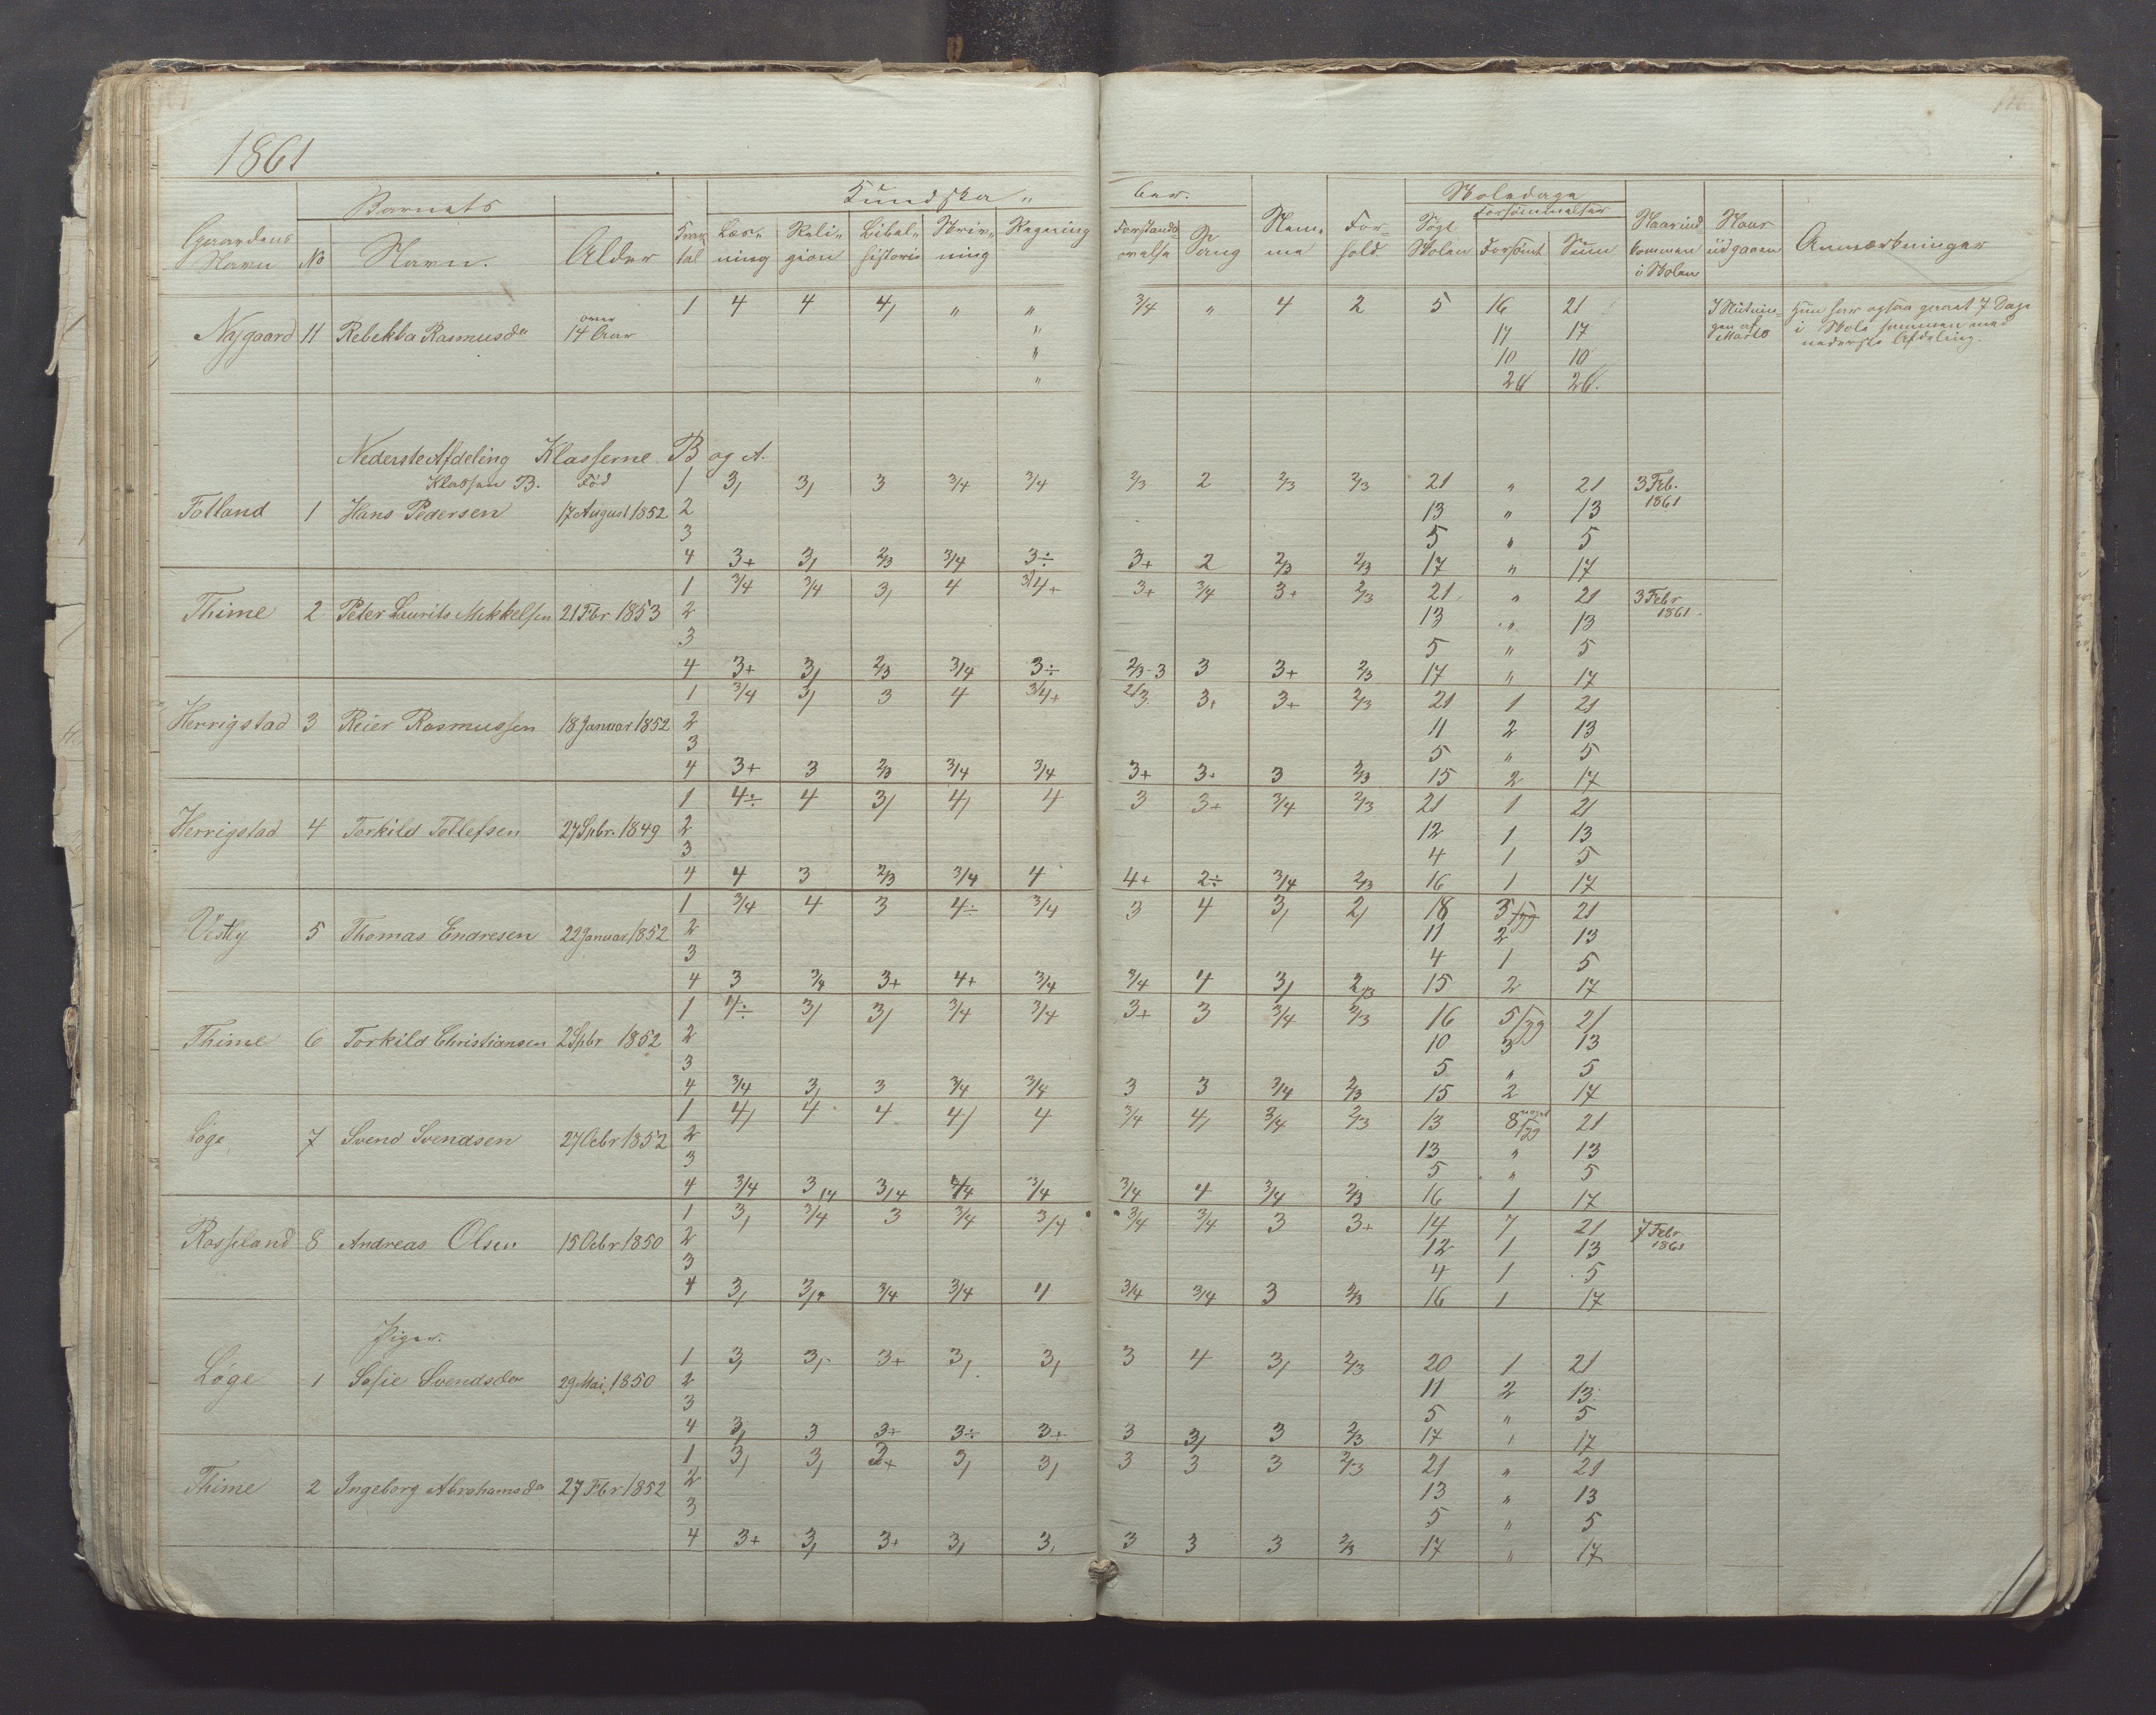 1861
Gaardens Navn | Barnets No | Navn. | Alder | Læs„ning | Reli„gion | Bibel„historie | Skriv„ning | Regning | Kundska„ber. | Sang | Nem„me | For=hold | Skoledage | Søgt Skolen | Forsømmelser | Forsømt | Sum | Naar ind kommen i Skolen | Naar udgaaen | Anmærkninger
1 4 4 4/ „ „ 3/4 „ 4 2 5 16 21
Nygaard 11 Rebekka Rasmusdr over 14 Aar „ 17 17 Hun har ogsaa gaaet 7 Dage i Skole sammen med nederste Afdeling.
„ 10 10
„ 26 26.
Nederste Afdeling Klasserne B og A.
Klassen B. Fød
1 3/ 3/ 3 3/4 3/4 2/3 2 2/3 2/3 21 „ 21 3 Feb. 1861
Tolland 1 Hans Pedersen 17 August 1852 2 13 „ 13
3 5 „ 5
4 3+ 3/ 2/3 3/4 3÷ 3+ 2 2/3 2/3 17 „ 17
1 3/4 3/4 3/ 4 3/4+ 3+ 3/4 3+ 2/3 21 „ 21 3 Febr 1861.
Thime 2 Peter Laurits Mikkelsen 21 Fbr 1853 2 13 „ 13
3 5 „ 5
4 3+ 3/ 2/3 3/4 3÷ 2/3-3 3 3+ 2/3 17 „ 17
1 3/4 3/ 3 4 3/4+ 2/3 3+ 3+ 2/3 21 1 21
Herrigstad 3 Reier Rasmussen 18 Januar 1852 2 11 2 13
3 5 „ 5
4 3+ 3 2/3 3/4 3/4 3+ 3+ 3 2/3 15 2 17
1 4÷ 4 3/ 4/ 4 3 3+ 3/4 2/3 21 1 21
Herrigstad 4 Torkild Tollefsen 27 Spbr. 1849 2 12 1 13
3 4 1 5
4 4 3 2/3 3/4 4 4+ 2÷ 3/4 2/3 16 1 17
1 3/4 4 3 4÷ 3/4 3 4 3/ 2/ 18 3/syg 21
Vestly 5 Thomas Endresen 22 Januar 1852 2 11 2 13
3 4 1 5
4 3 3/4 3+ 4+ 3/4 3/4 4 3/ 2/3 15 2 17
1 4÷ 3/ 3/ 3/4 3/4 3+ 3 3/4 2/3 16 5/syg 21
Thime 6 Torkild Christiansen 2 Spbr 1852 2 10 3 13
3 5 „ 5
4 3/4 3/ 3 3/4 3/4 3 3 3/4 2/3 15 2 17
1 4/ 4 4 4/ 4 3/4 4/ 3/4 2/3 13 8/syg 21
Løge 7 Svend Svendsen 27 Ocbr 1852 2 13 „ 13
3 5 „ 5
4 3/4 3/4 3/4 3/4 3/4 3/4 4 3/4 2/3 16 1 17
1 3/ 3/4 3 3/4 3/4 3/4 3/4 3 3+ 14 7 21 7 Febr 1861
Rosseland 8 Andreas Olsen 15 Ocbr 1850 2 12 1 13
3 4 1 5
4 3/ 3/4 3/4 3/4 4 3/4 3/4 3 2/3 16 1 17
Piger.
1 3/ 3/ 3+ 3/ 3/ 3 4 3/ 2/3 20 1 21
Løge 1 Sofie Svendsdr 29 Mai 1850 2 11 2 13
3 5 „ 5
4 3/ 3 3+ 3÷ 3+ 3 3/ 3 2/3 17 „ 17
1 3/ 3/ 3+ 3/ 3/ 3 3 3 2/3 21 „ 21
Thime 2 Ingeborg Abrahamsdr 27 Fbr 1852 2 13 „ 13
3 5 „ 5
4 3+ 3/ 3+ 3/ 3/ 3 3 3 2/3 17 „ 17